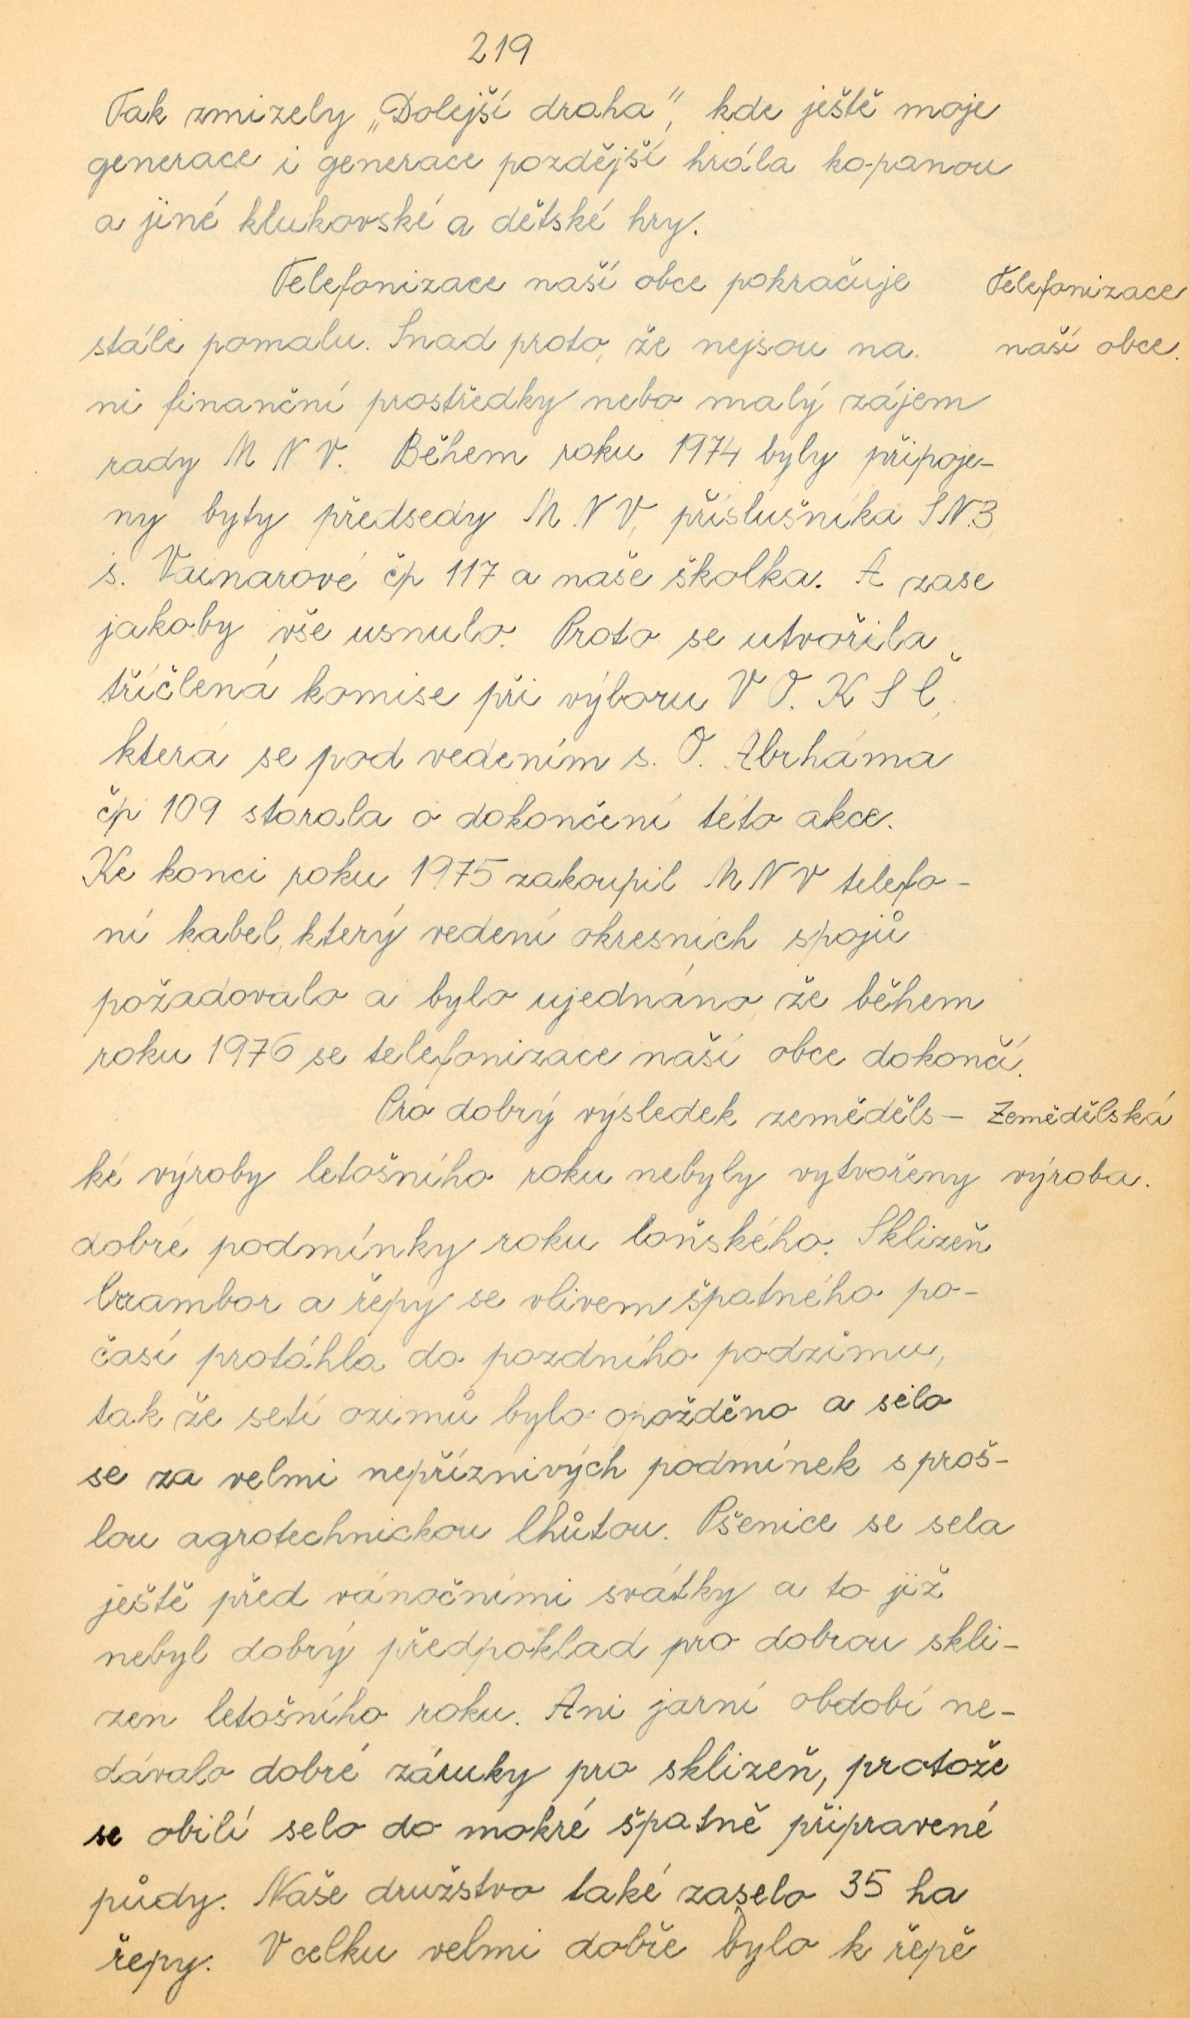 219
Tak zmizely „Dolejší draha", kde ještě moje
generace i generace pozdější hrála kopanou
a jiné klukovské a dětské hry.
Telefonizace naší obce pokračuje
Telefonizace
stále pomalu. Snad proto, že nejsou na
naší obce.
ni finanční prostředky nebo malý zájem
rady M N V. Během roku 1974 byly připoje-
ny byty předsedy M N V, příslušníka S N B
s. Vaunarové čp 117 a naše školka. A zase
jakoby vše usnulo. Proto se utvořila
tříčlená komise při výboru V O. K S Č,
která se pod vedením s. O. Abrháma
čp 109 starala o dokončení této akce.
Ke konci roku 1975 zakoupil M N V telefo-
ní kabel, který vedení okresních spojů
požadovalo a bylo ujednáno, že během
roku 1976 se telefonizace naší obce dokončí.
Pro dobrý výsledek zeměděls-
Zemědělská
ké výroby letošního roku nebyly vytvořeny
výroba.
dobré podmínky roku loňského. Sklizeň
brambor a řepy se vlivem špatného po-
časí protáhla do pozdního podzimu,
tak že setí ozimů bylo opožděno a selo
se za velmi nepříznivých podmínek s proš-
lou agrotechnickou lhůtou. Pšenice se sela
ještě před vánočními svátky a to již
nebyl dobrý předpoklad pro dobrou skli-
zen letošního roku. Ani jarní období ne-
dávalo dobré záruky pro sklizeň, protože
se obilí selo do mokré špatně připravené
půdy. Naše družstvo také zaselo 35 ha
řepy. V celku velmi dobře bylo k řepě